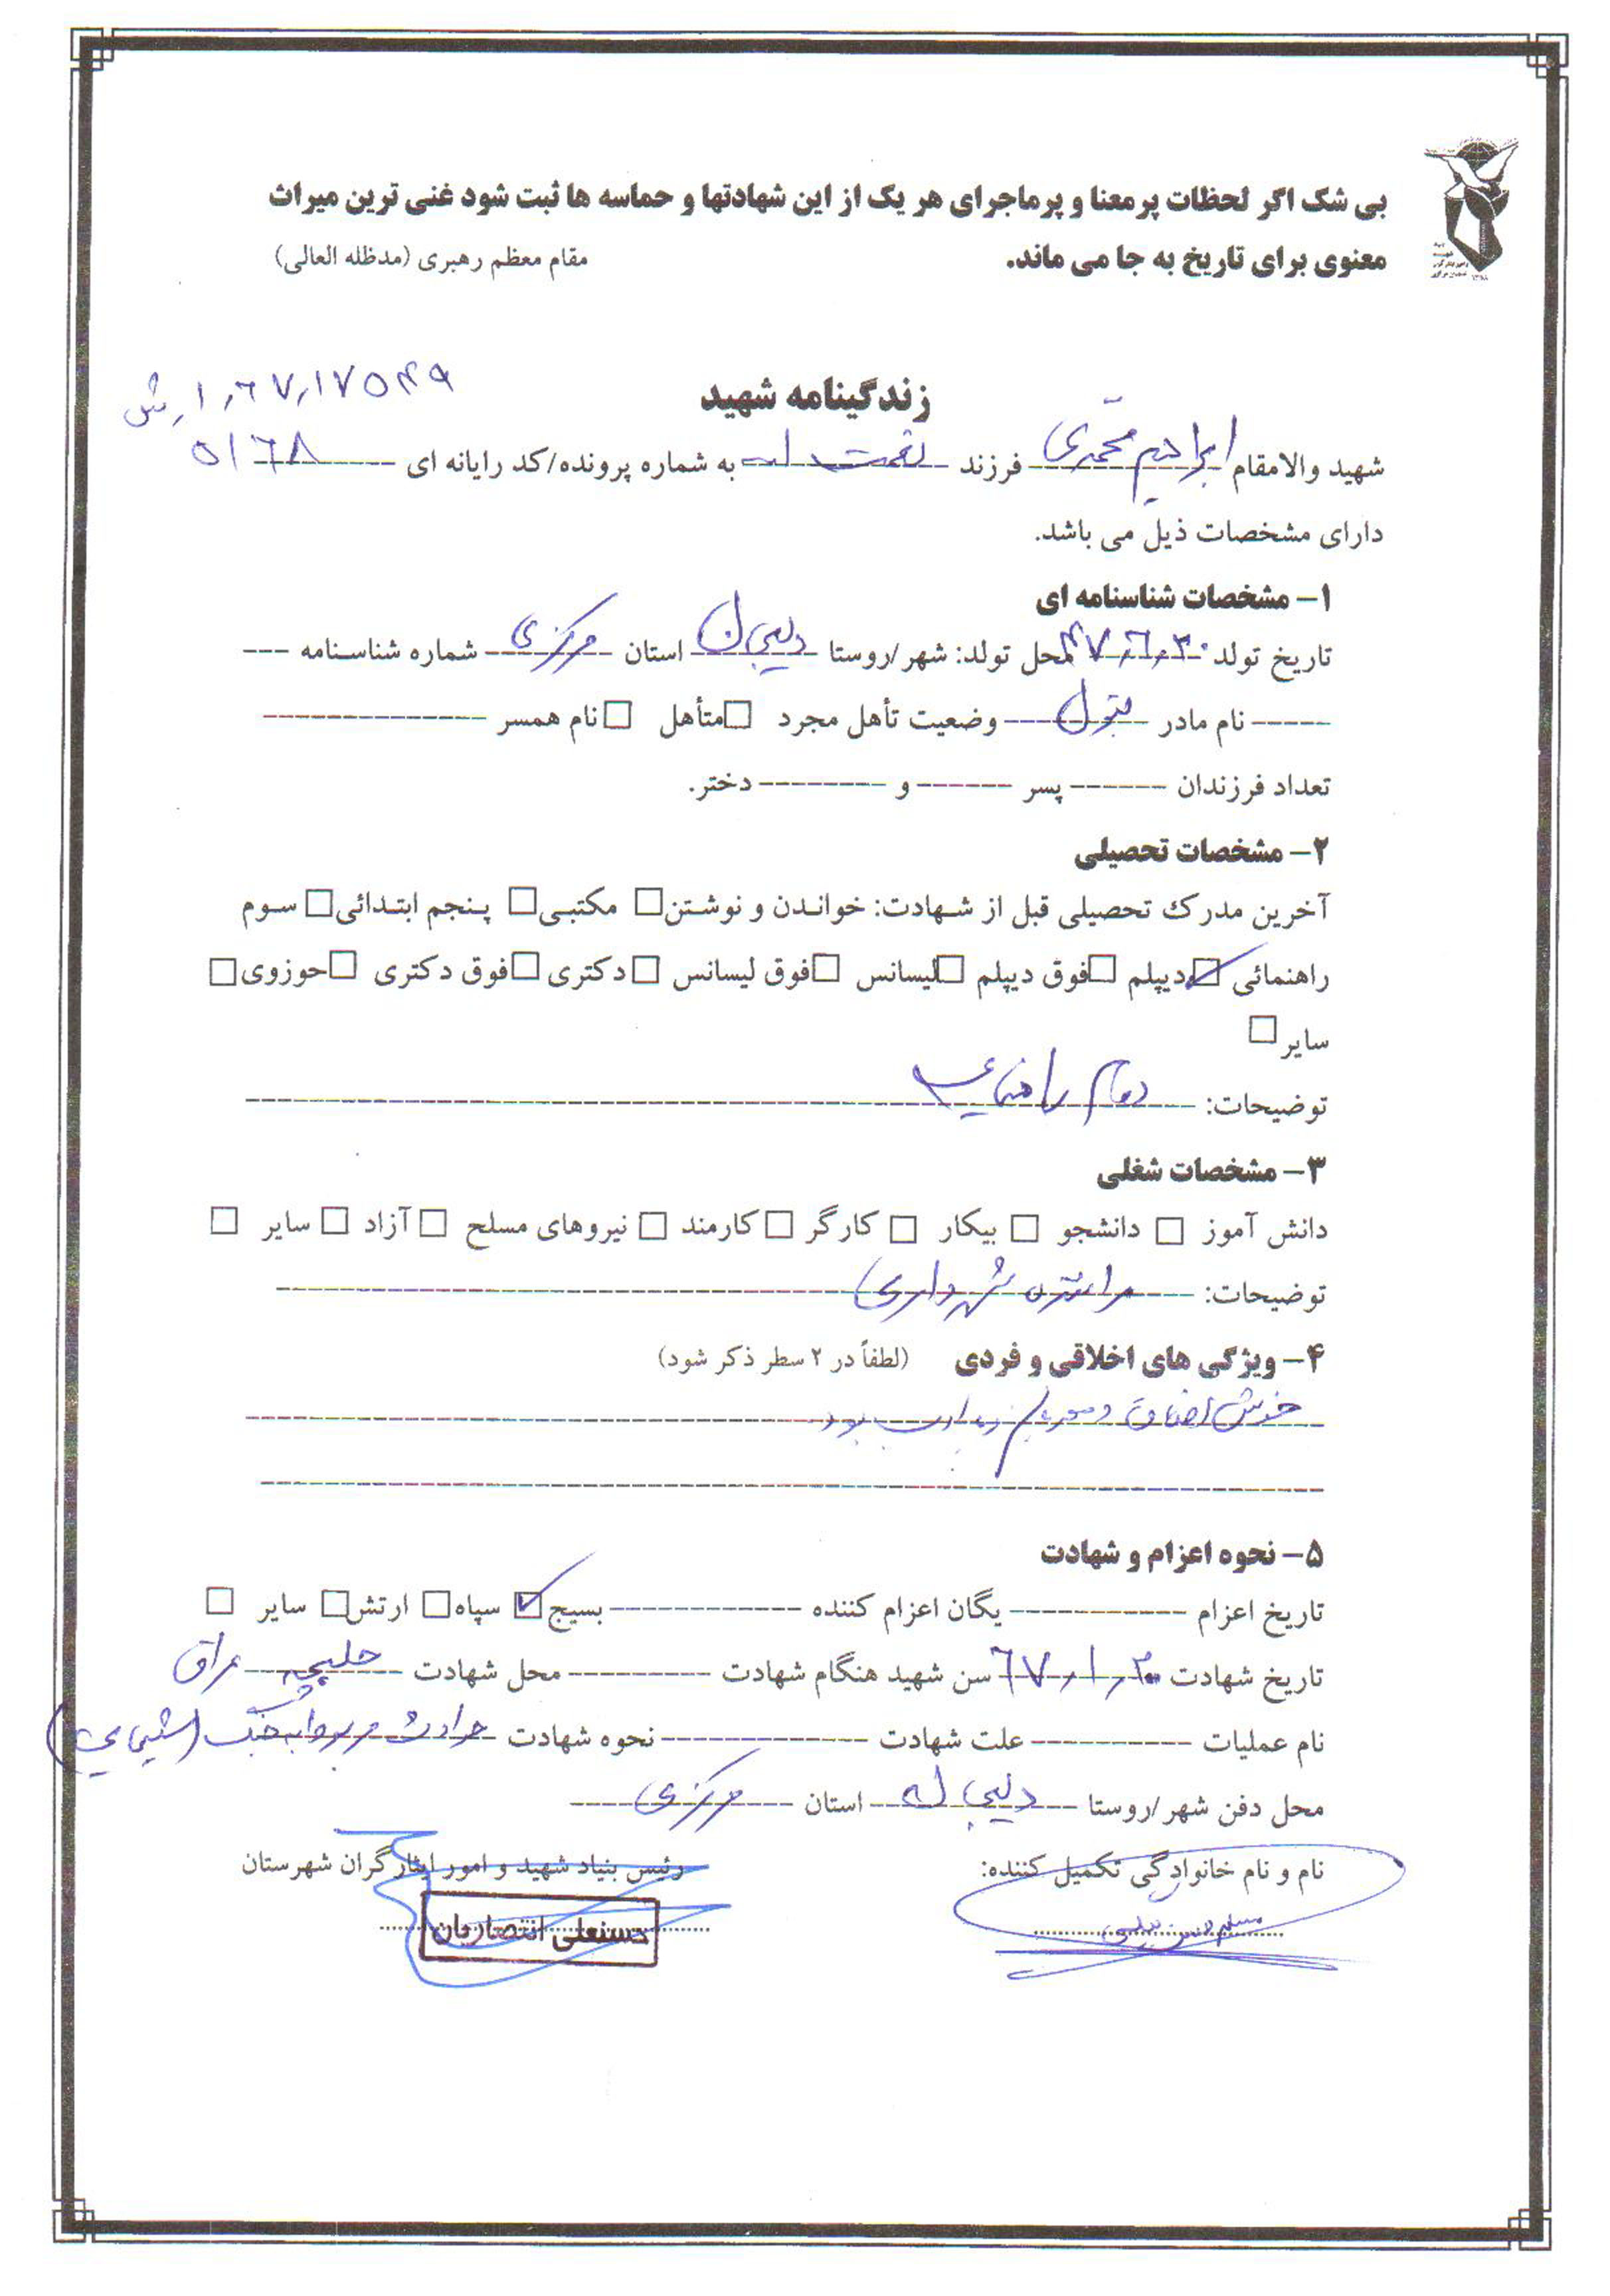 بی شک اگر لحظات پرمعنا و پرماجرای هر یک از این شهادتها و حماسه ها ثبت شود غنی ترین میراث
معنوی برای تاریخ به جا می ماند.
مقام معظم رهبری (مدظله العالی)
زندگینامه شهید
۱٫۶۷٫۱۷۵۴۹
شهید والامقام ابراهیم محمدی فرزند نعمت اله به شماره پرونده/کد رایانه ای ۵۱۶۸
دارای مشخصات ذیل می باشد.
۱- مشخصات شناسنامه ای
تاریخ تولد ۴۷٫۶٫۳۰ محل تولد: شهر/روستا دلیجان استان مرکزی شماره شناسنامه
نام مادر بتول وضعیت تأهل مجرد □ متأهل □ نام همسر
تعداد فرزندان پسر و دختر.
۲- مشخصات تحصیلی
آخرین مدرک تحصیلی قبل از شهادت: خواندن و نوشتن □ مکتبی □ پنجم ابتدائی □ سوم
راهنمائی ☑ دیپلم □ فوق دیپلم □ لیسانس □ فوق لیسانس □ دکتری □ فوق دکتری □ حوزوی □
سایر □
توضیحات: دوم راهنمایی
۳- مشخصات شغلی
دانش آموز □ دانشجو □ بیکار □ کارگر □ کارمند □ نیروهای مسلح □ آزاد □ سایر □
توضیحات: راننده شهرداری
۴- ویژگی های اخلاقی و فردی (لطفاً در ۲ سطر ذکر شود)
خوش اخلاق و بود
۵- نحوه اعزام و شهادت
تاریخ اعزام یگان اعزام کننده بسیج ☑ سپاه □ ارتش □ سایر □
تاریخ شهادت ۶۷٫۱٫۳۰ سن شهید هنگام شهادت محل شهادت حلبچه عراق
نام عملیات علت شهادت نحوه شهادت حوادث مربوط به جنگ (شیمیایی)
محل دفن شهر/روستا دلیجان استان مرکزی
نام و نام خانوادگی تکمیل کننده:
رئیس بنیاد شهید و امور ایثارگران شهرستان
حسنعلی انتصاریان